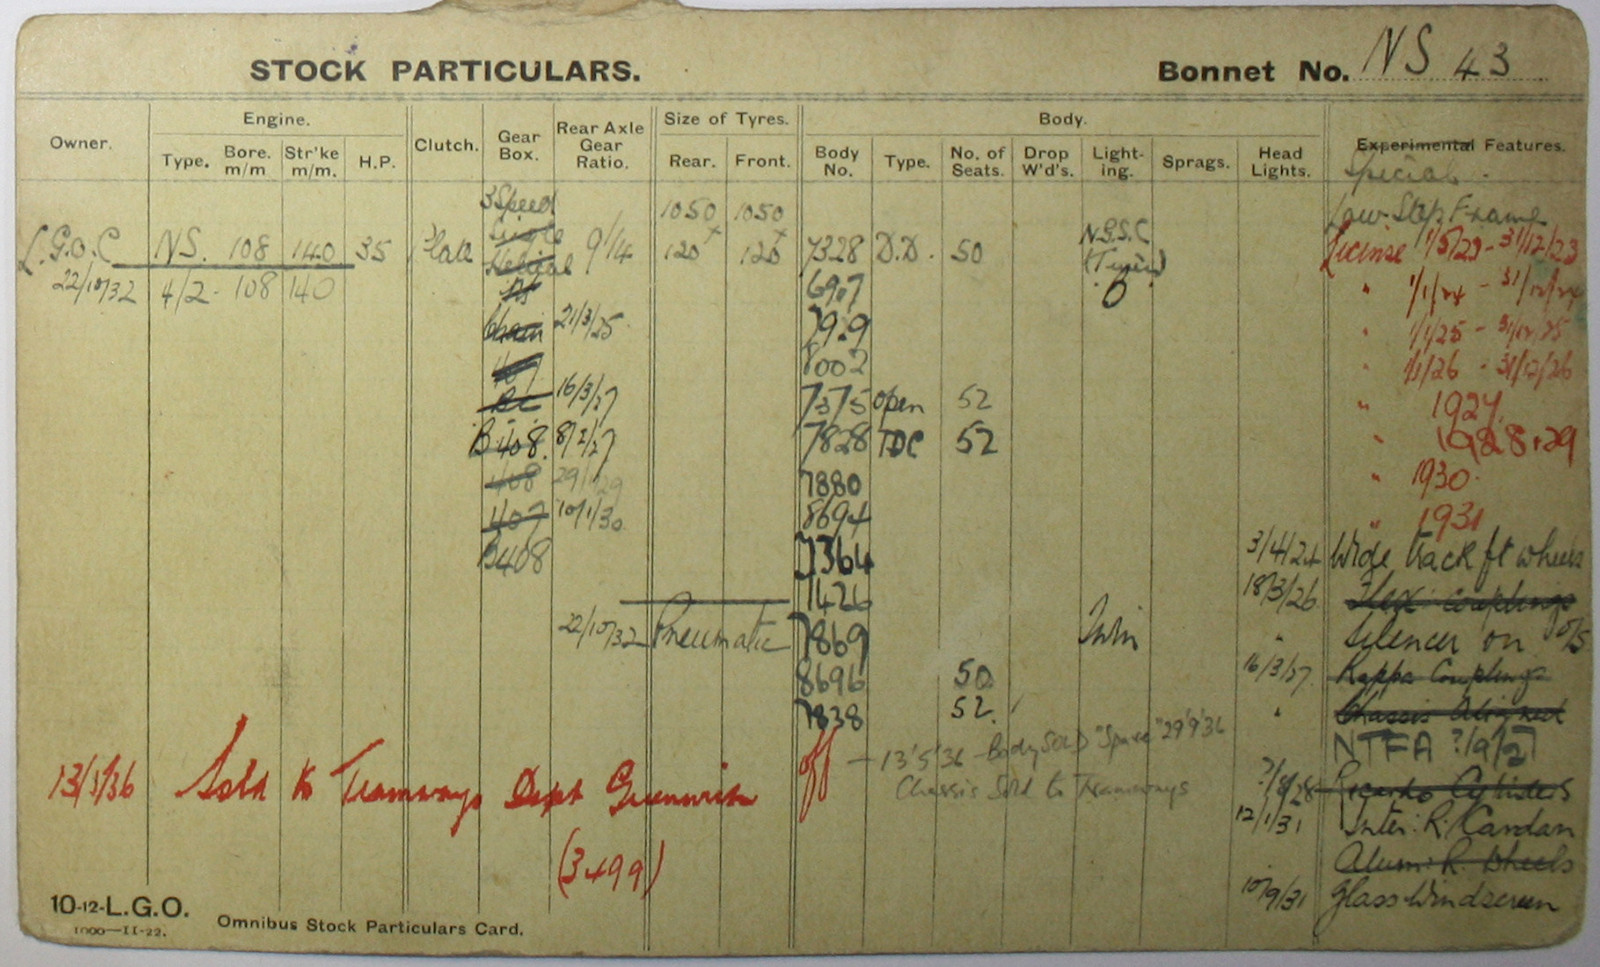 STOCK PARTICULARS. Bonnet No. NS 43
Owner. Engine. Clutch. Gear Box. Rear Axle Gear Ratio. Size of Tyres. Body. Experimental Features.
Type. Bore. m/m Str'ke m/m. H.P. Rear. Front. Body No. Type. No. of Seats. Drop W'd's. Light-ing. Sprags. Head Lights. Special.
3 Speed 1050 1050 Low Step Frame
L.G.O.C NS. 108 140 35 Plate Single Helical 9/14 120 120 7328 D.D. 50 N.G.S.C License 1/5/23 - 31/12/23
22/10/32 4/2 - 108 140 " 1/1/24 - 31/12/24
Chain 21/3/25 7979 " 1/1/25 - 31/12/25
407 8002 " 1/1/26 - 31/12/26
BC 16/3/27 7375 open 52 " 1927
B408. 8/2/27 7828 TDC 52 " 1928+29
408 29/1/29 7880 " 1930
407 10/1/30 8694 " 1931
B408 7364 3/4/24 Wide track ft wheels
1426 18/3/26 Flex: couplings
22/10/32 Pneumatic 7869 Twin " Silencer on O/S
8696 50 16/3/27 Kappa Couplings
7838 52 " Chassis Aligned
NTFA ?/9/27
off - 13'5'36 - Body Sold "Spare" 29'9'36
13/5/36 Sold to Tramways Dept Greenwich Chassis Sold to Tramways ?/8/28 Ricardo Cylinders
12/1/31 Inter: R. Cardan
(3499) Alum: R. Wheels
10/9/31 Glass Windscreen
10-12-L.G.O.
1000—11-22. Omnibus Stock Particulars Card.